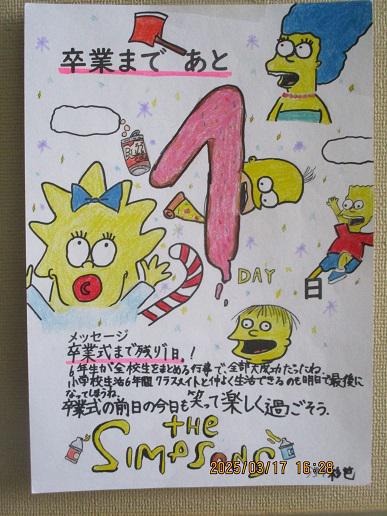 卒業まで あと
BUZZ
1
DAY
日
メッセージ
卒業式まで残り1日。!
6年生が全校生をまとめる行事で、全部大成功だったね。
小学校生活6年間クラスメイトと仲よく生活できるのも明日で最後に
なってしまうね。
卒業式の前日の今日も笑って楽しく過ごそう。
THE
SIMPSONS
2025/03/17 16:28